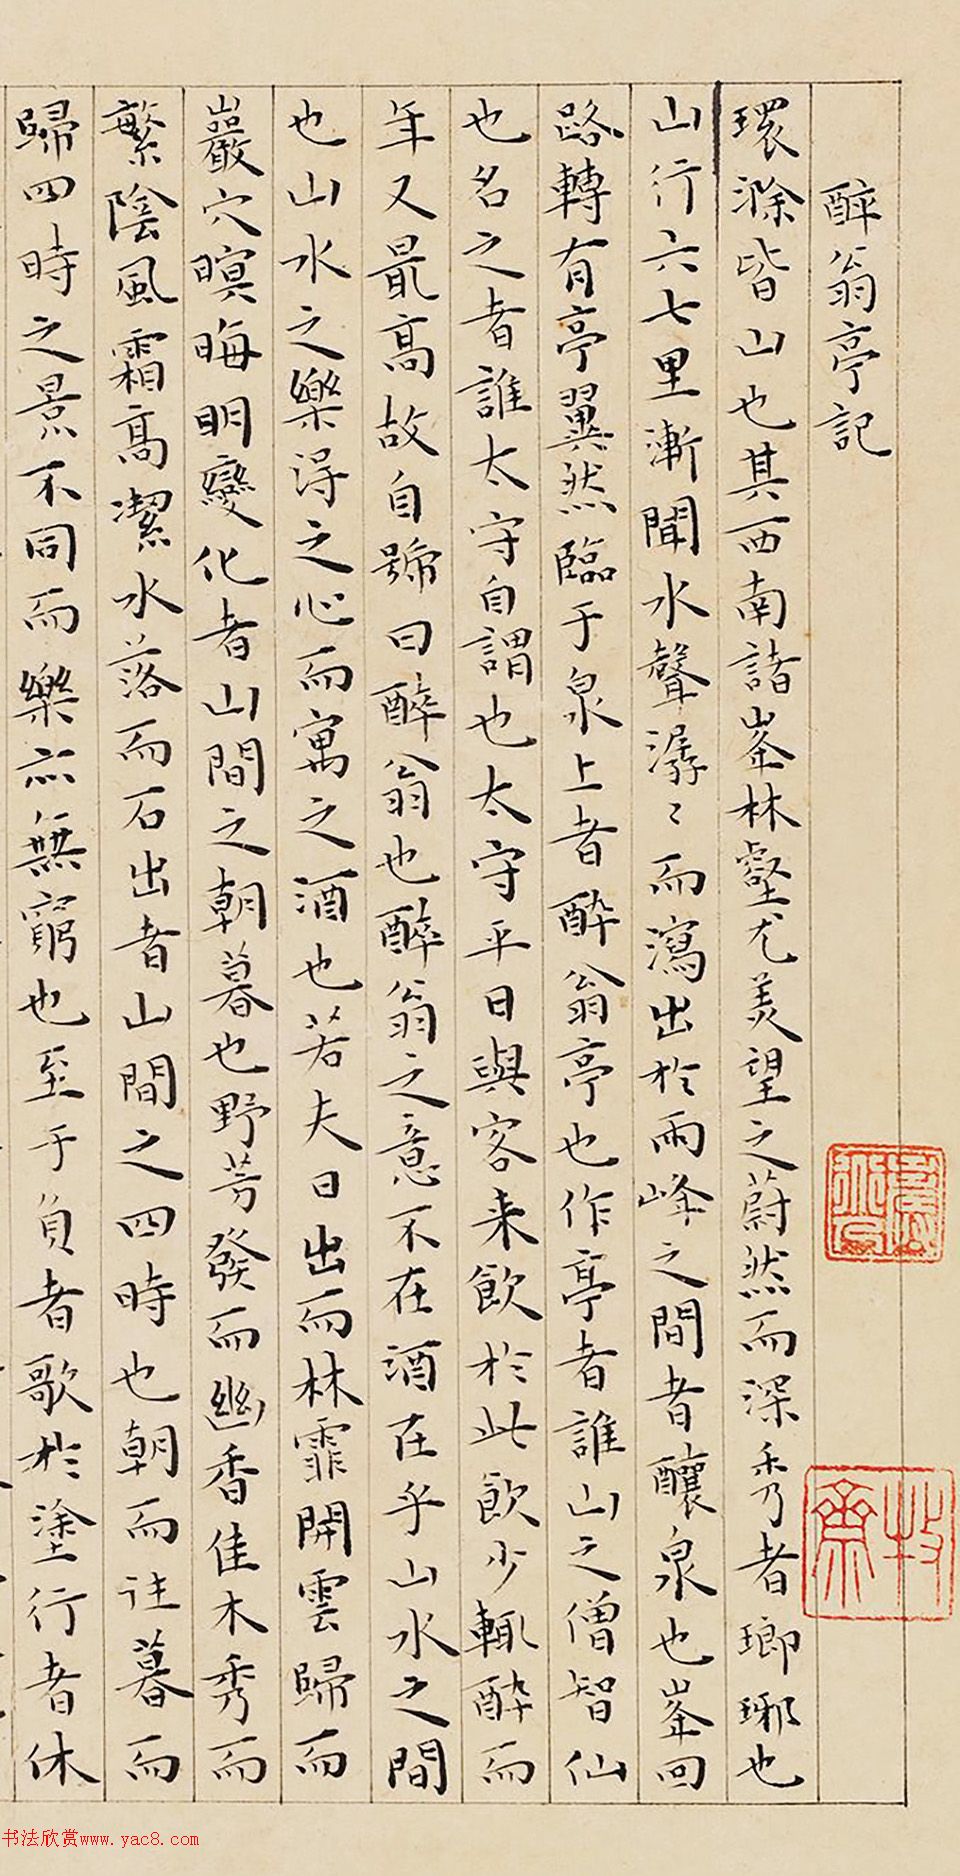 醉翁亭記
環滁皆山也其西南諸峯林壑尤美望之蔚然而深秀者瑯琊也
山行六七里漸聞水聲潺〻而瀉出於兩峰之間者釀泉也峯回
路轉有亭翼然臨于泉上者醉翁亭也作亭者誰山之僧智仙
也名之者誰太守自謂也太守平日與客来飲於此飲少輒醉而
年又最高故自號曰醉翁也醉翁之意不在酒在乎山水之間
也山水之樂得之心而寓之酒也若夫日出而林霏開雲歸而
巖穴暝晦明變化者山間之朝暮也野芳發而幽香佳木秀而
繁陰風霜高潔水落而石出者山間之四時也朝而往暮而
歸四時之景不同而樂亦無窮也至于負者歌於塗行者休
牧齋
书法欣赏www.yac8.com